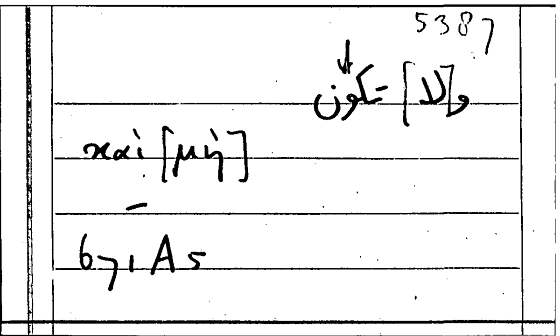 5387
و[لا] تكون
καὶ [μὴ]
–
671 A 5